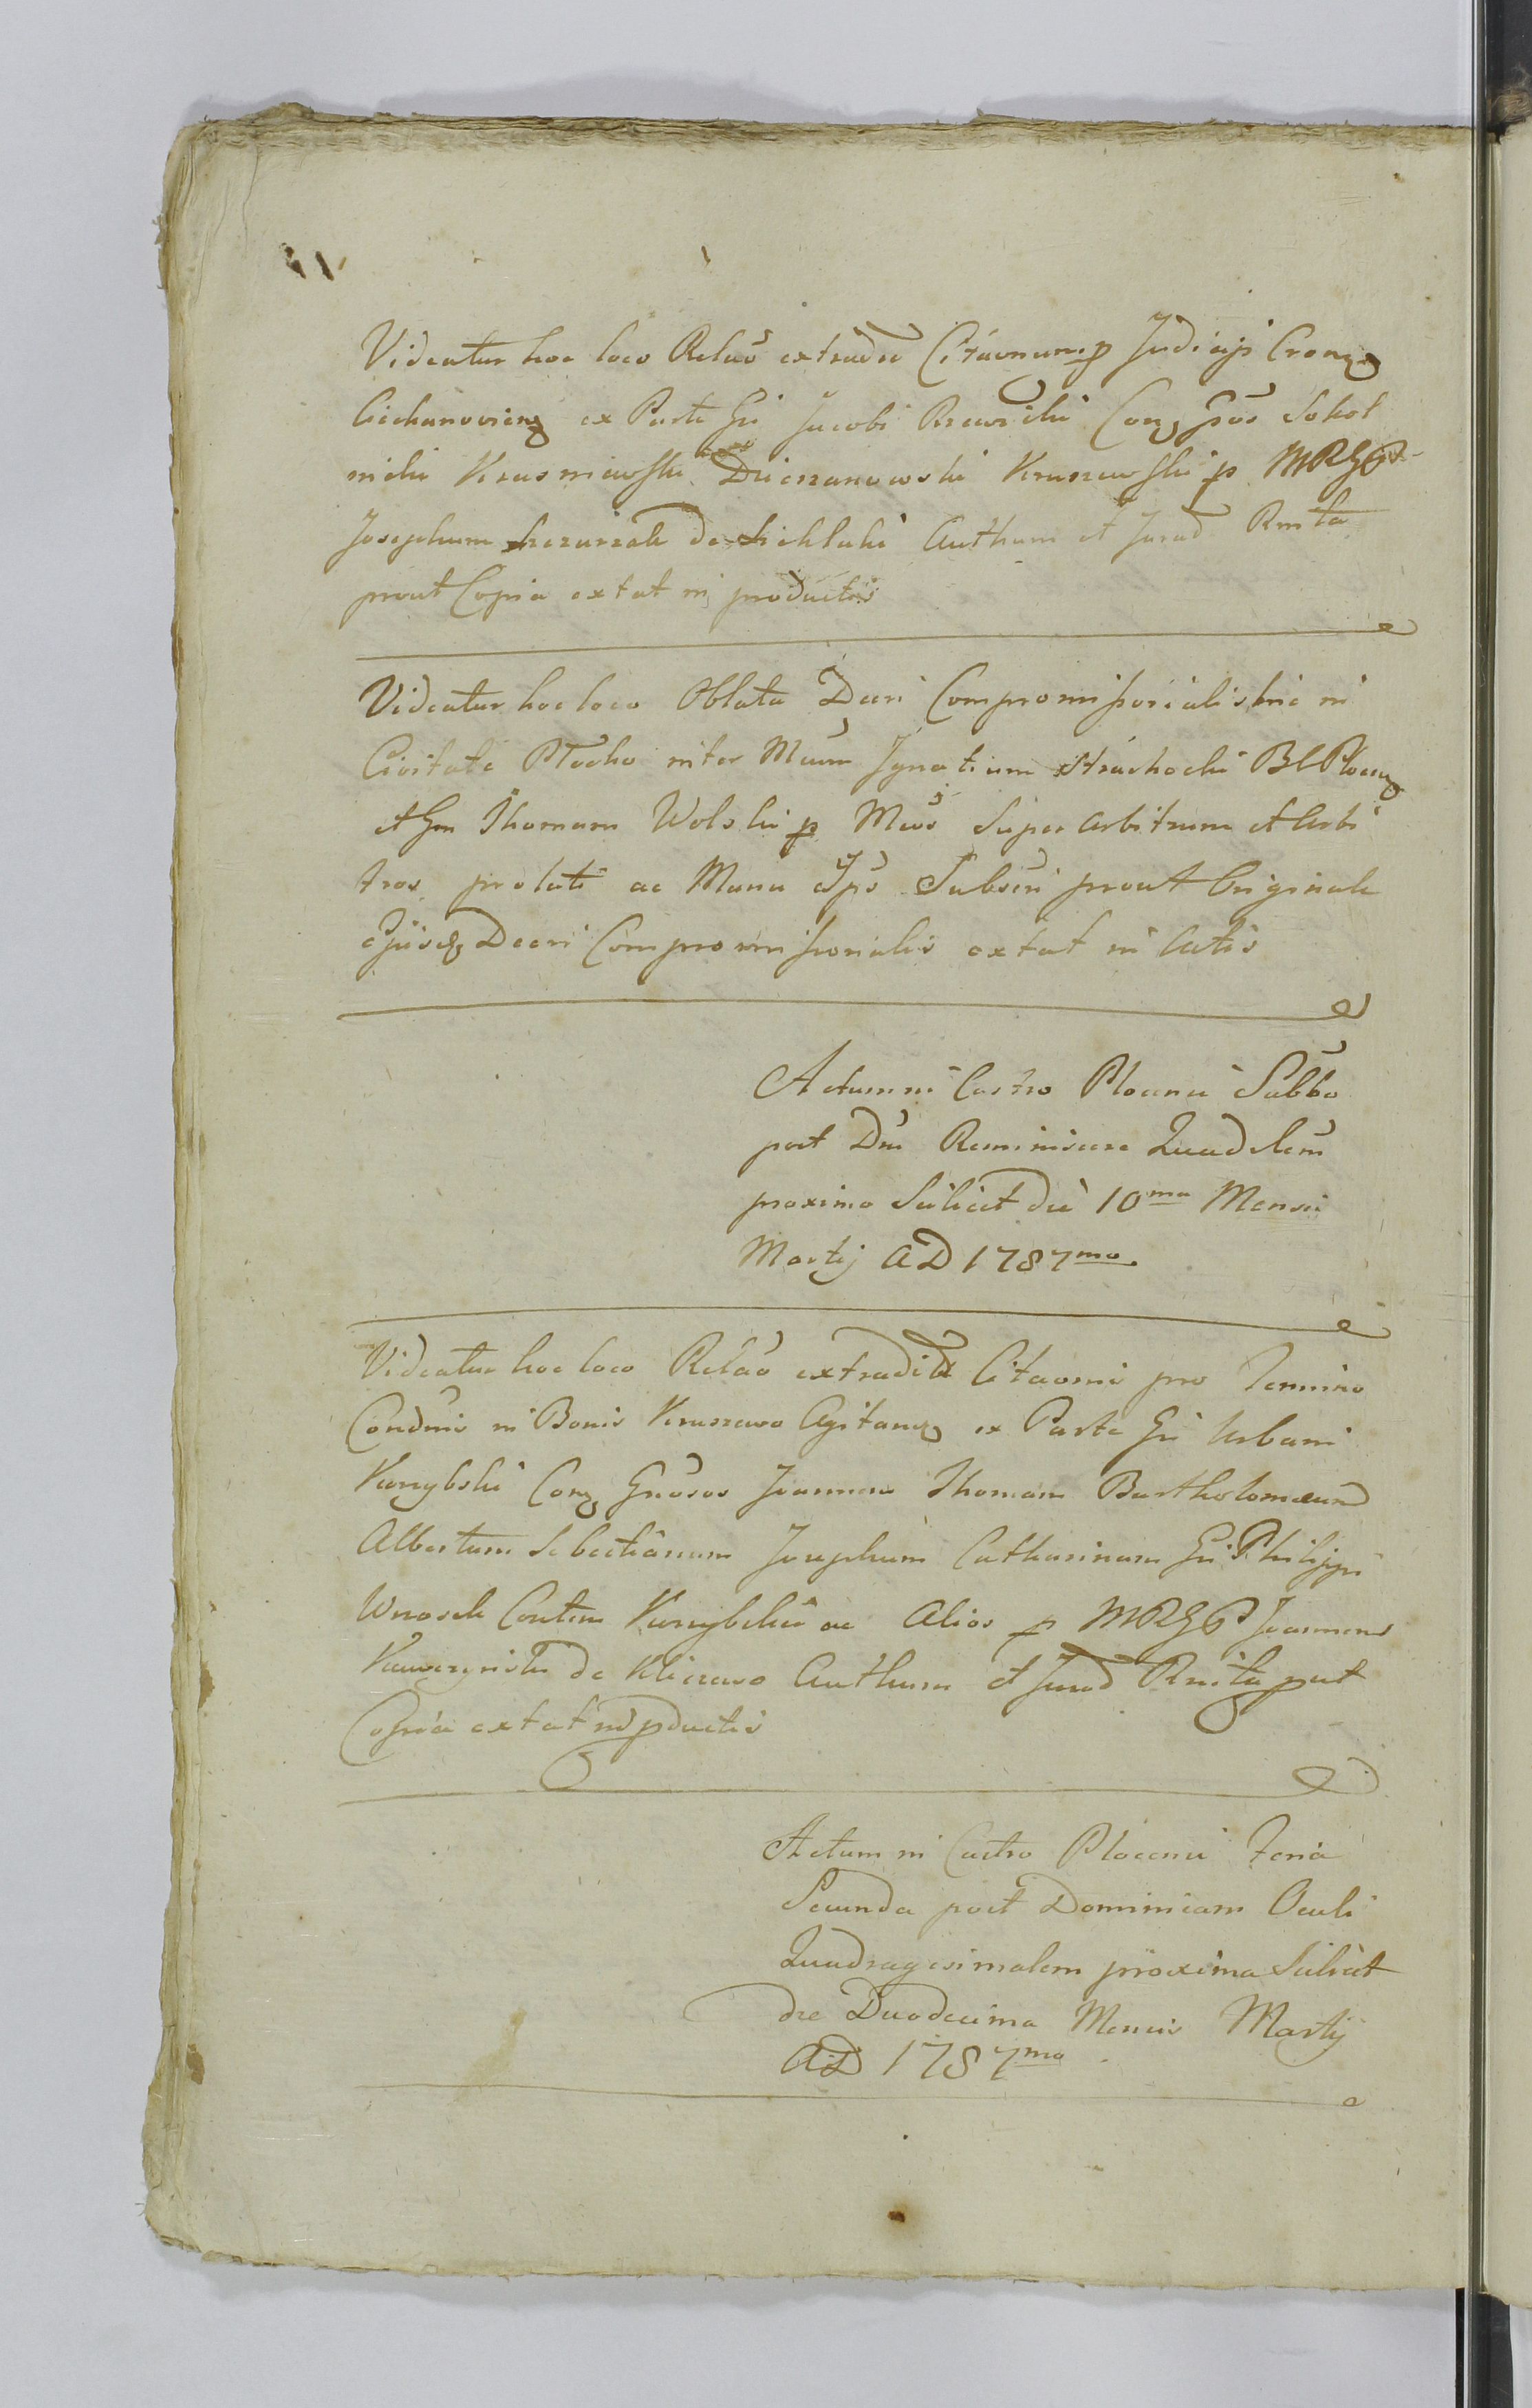 Videatur hoc loco Relaõ extradõ Citaõnum p Judicijs Cron
Ciechanovien ex Parte Gñi Jacobi Con Gños Sokol
nicki Krasniewski Dzierzanowski Kruszewski p MRGP
Josephum de Authum et Jurad Rmta
prout Copia extat in productis
Videatur hoc loco Oblata Decri Compromissorialis hic in
Civitate Plocko inter Mcum Ignatium Strachocki BC Plocen
et Gm Thomam Wolski p Mcos Super arbitrum et Arbi
tros prolati ac Manu Ips Subscri prout Originale
Ejusdq Decri Compromissorialis extat in Actis
Actum in Castro Plocensi Sabbo
post Dm Reminiscere Quadlem
proximo Scilicet die 10ma Mensis
Martij AD 1787mo.
Videatur hoc loco Relaõ extradit Citaonis pro Termino
Condnis in Bonis Kruszewo Agitan ex Parte Gñi Urbani
Con Gnosos Joannem Thomam Bartholomæum
Albertum Sebastianum Josephum Catharinam Gñi Philippi
Wnosek Contem ac Alios p MRGP Joannem
de Kliczewo Authum et Jurad Rmta put
Copia extat in pductis
Actum in Castro Plocensi Feria
Secunda post Dominicam Oculi
Quadragesimalem proxima Scilicet
die Duodecima Mensis Martij
AD 1787mo